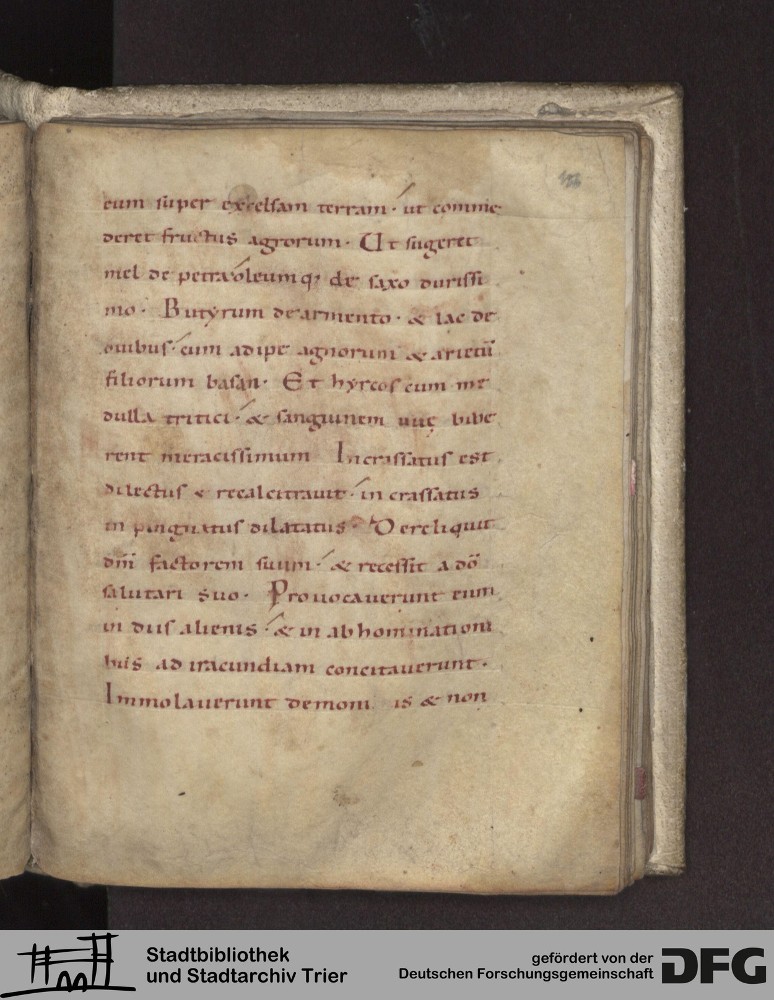 eum super excelsam terram· ut comme
deret fructus agrorum· Ut sugeret
mel de petra oleumq; de saxo durissi
mo· Butyrum de armento· & lac de
ouibus· cum adipe agnorum & arietū
filiorum basan· Et hyrcos cum me
dulla tritici· & sanguinem uuę bibe
rent meracissimum Incrassatus est
dilectus & recalcitrauit· incrassatus
inpinguatus dilatatus· Dereliquit
dm̄ factorem suum· & recessit a dō
salutari suo· Prouocauerunt eum
in diis alienis· & in abhominationi
bus ad iracundiam concitauerunt·
Immolauerunt demoniis & non
Stadtbibliothek
und Stadtarchiv Trier
gefördert von der
Deutschen Forschungsgemeinschaft
DFG